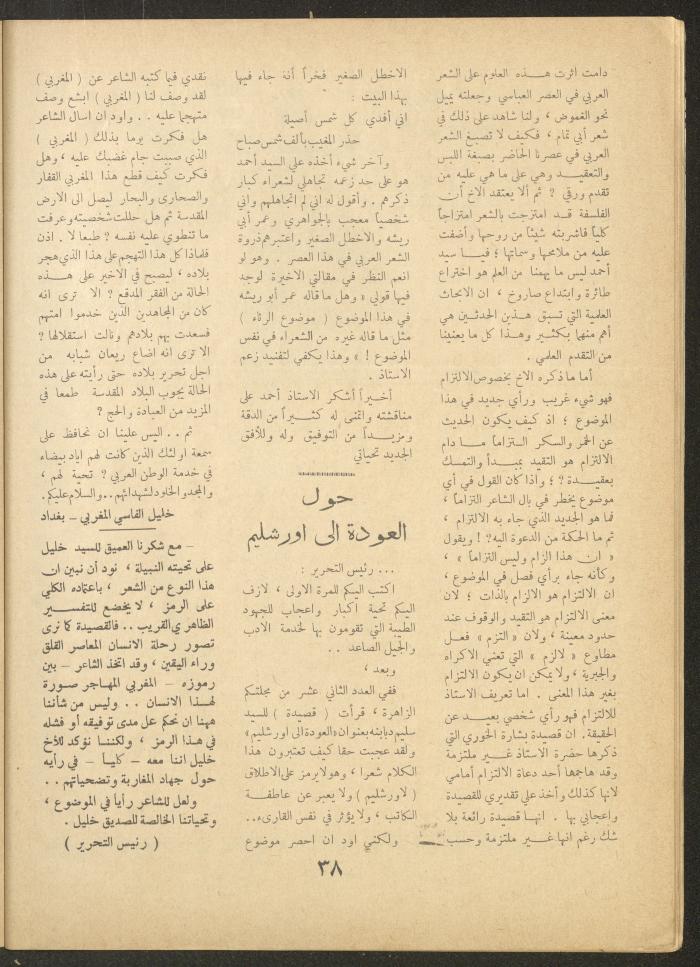 دامت اثرت هـــذه العلوم على الشعر
العربي في العصر العباسي وجعلته يميل
نحو الغموض ، ولنا شاهد على ذلك في
شعر أبي تمام ، فكيف لا تصبغ الشعر
العربي في عصرنا الحاضر بصبغة اللبس
والتعقيــد وهي على ما هي عليه من
تقدم ورقي ? ثم ألا يعتقد الاخ أن
الفلسفة قـد امتزجت بالشعر امتزاجاً
كلياً فاشربته شيئاً من روحها وأضفت
عليه من ملامحها وسماتها ؛ فيــا سيد
أحمد ليس ما يهمنا من العلم هو اختراع
طائرة وابتداع صاروخ ، ان الابحاث
العلمية التي تسبق هــذين الحدثــين هي
أهم منهما بكثــير وهــذا كل ما يعنينا
من التقدم العلمي .
أما ما ذكره الاخ بخصوص الالتزام
فهو شيء غريب ورأي جديد في هذا
الموضوع ؛ اذ كيف يكون الحديث
عن الخمر والسكر التزاماً مــا دام
الالتزام هو التقيد بمبــدأ والتمسك
بعقيــدة ? ؛ واذا كان القول في أي
موضوع يخطر في بال الشاعر التزاماً ،
فما هو الجديد الذي جاء به الالتزام ،
ثم ما الحكمة من الدعوة اليه?! ويقول
« ان هــذا الزام وليس التزاماً » ،
وكأنه جاء برأي فصل في الموضوع ،
ان الالتزام هو الالزام بالذات ؛ لان
معنى الالتزام هو التقيد والوقوف عند
حدود معينة ، ولان « التزم » فعـل
مطاوع « لالزم » التي تعني الاكراه
والجبرية ، ولا يمكن ان يكون الالتزام
بغير هذا المعنى . اما تعريف الاستاذ
للالتزام فهو رأي شخصي بعيــد عن
الحقيقة. ان قصيدة بشارة الخوري التي
ذكرها حضرة الاستاذ غــير ملتزمة
وقد هاجمها أحد دعاة الالتزام أمامي
لانها كذلك وأخذ علي تقديري للقصيدة
واعجابي بها . انهــا قصيدة رائعة بلا
شك رغم انها غــير ملتزمة وحسب
الاخطل الصغير فخراً أنه جاء فيها
بهذا البيت :
اني أفدي كل شمس أصيلة
حذر المغيب بألف شمس صباح
وآخر شيء أخذه علي السيد أحمد
هو على حد زعمه تجاهلي لشعراء كبار
ذكرهم . وأقول له اني لم اتجاهلهم واني
شخصياً معجب بالجواهري وعمر أبي
ريشه والاخطل الصغير واعتبرهم ذروة
الشعر العربي في هذا العصر . وهو لو
انعم النظر في مقالتي الاخيرة لوجد
فيها قولي « وهل ما قاله عمر أبو ريشه
في هذا الموضوع ( موضوع الرثاء )
مثل ما قاله غيره من الشعراء في نفس
الموضوع ! » وهذا يكفي لتفنيد زعم
الاستاذ .
أخيراً أشكر الاستاذ أحمد على
مناقشته واتمنى له كثــيراً من الدقة
ومزيــداً من التوفيق وله وللأفق
الجديد تحياتي
حول
العودة الى اورشليم
... رئيس التحرير :
اكتب اليكم للمرة الاولى ، لازف
اليكم تحية اكبار واعجاب للجهود
الطيبة التي تقومون بها لخدمة الأدب
والجيل الصاعد . .
وبعد ،
ففي العدد الثاني عشر من مجلتكم
الزاهرة ، قرأت ( قصيدة ) للسيد
سليم دبابنه بعنوان «العودة الى اورشليم»
ولقد عجبت حقا كيف تعتبرون هذا
الكلام شعرا ، وهو لا يرمز على الاطلاق
( لاورشليم ) ولا يعبر عن عاطفــة
الكاتب ، ولا يؤثر في نفس القارىء..
ولكني اود ان احصر موضوع
نقدي فيما كتبه الشاعر عن ( المغربي )
لقد وصف لنا ( المغربي ) ابشع وصف
متهجما عليه . . واود ان اسال الشاعر
هل فكرت يوما بذلك ( المغربي )
الذي صببت جام غضبك عليه ، وهل
فكرت كيف قطع هذا المغربي القفار
والصحارى والبحار ليصل الى الارض
المقدسة ثم هل حللت شخصيته وعرفت
ما تنطوي عليه نفسه ? طبعا لا . اذن
فلماذا كل هذا التهجم على هذا الذي هجر
بلاده ، ليصبح في الاخير على هــذه
الحالة من الفقر المدقع ? الا ترى انه
كان من المجاهدين الذين خدموا امتهم
فسعدت بهم بلادهم ونالت استقلالها ?
الا ترى انه اضاع ريعان شبابه من
اجل تحرير بلاده حتى رأيته على هذه
الحالة يجوب البلاد المقدسة طمعا في
المزيد من العبادة والحج ?
ثم . . اليس علينا ان نحافظ على
سمعة اولئك الذين كانت لهم اياد بيضاء
في خدمة الوطن العربي ? تحية لهم ،
والمجد والخلود لشهدائهم .. والسلام عليكم.
خليل الفاسي المغربي – بغداد
– مع شكرنا العميق للسيد خليل
على تحيته النبيلة ، نود أن نبين ان
هذا النوع من الشعر ، باعتماده الكلي
على الرمز ، لا يخضع للتفســير
الظاهري القريب .. فالقصيدة كما نرى
تصور رحلة الانسان المعاصر القلق
وراء اليقين ، وقد اتخذ الشاعر – بين
رموزه – المغربي المهاجر صــورة
لهــذا الانسان . . وليس من شأننا
ههنا ان نحكم على مدى توفيقه أو فشله
في هــذا الرمز ، ولكننــا نؤكد للأخ
خليل اننا معه – كليــا – في رأيه
حول جهاد المغاربة وتضحياتهم . .
ولعل للشاعر رأياً في الموضوع ،
وتحياتنا الخالصة للصديق خليل .
( رئيس التحرير )
٣٨